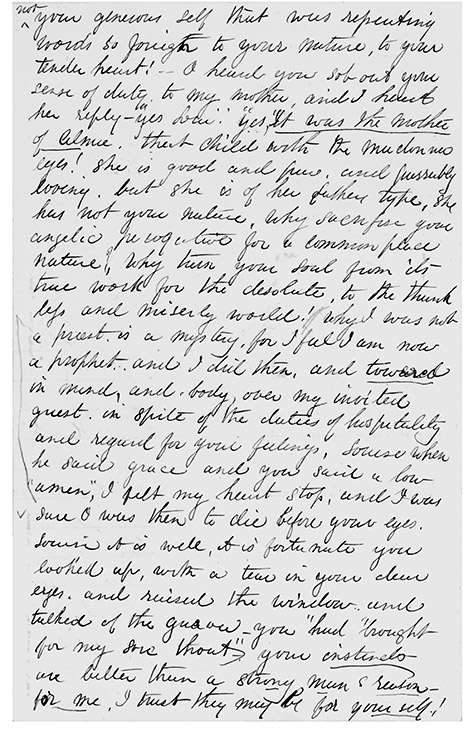 not
your generous self that was repeating
words so foreign to your nature, to your
tender heart! — I heard you sob out your
sense of duty to my mother, and I heard
her reply — "yes Louise! yes, It was the mother
of Celina. that child with the madonna
eyes! she is good and pure. and passably
loving. but she is of her fathers type, she
has not your nature, why sacrifise your
angelic perogative for a common place
nature, why turn your soul from its
true work for the desolate, to the thank
less and miserly world! why I was not
a priest is a mystery, for I feel I am now
a prophet. and I did then, and towered
in mind, and body, over my invited
guest. in spite of the duties of hospitality
and regard for your feelings, Louise when
he said grace and you said a low
"amen", I felt my heart stop, and I was
sure I was then to die before your eyes.
Louise it is well, it is fortunate you
looked up, with a tear in your dear
eyes. and raised the window. and
talked of the guava. you "had "brought
for my sore thoat" your instincts
are better than a strong man's reason—
for me, I trust they may be for your self!